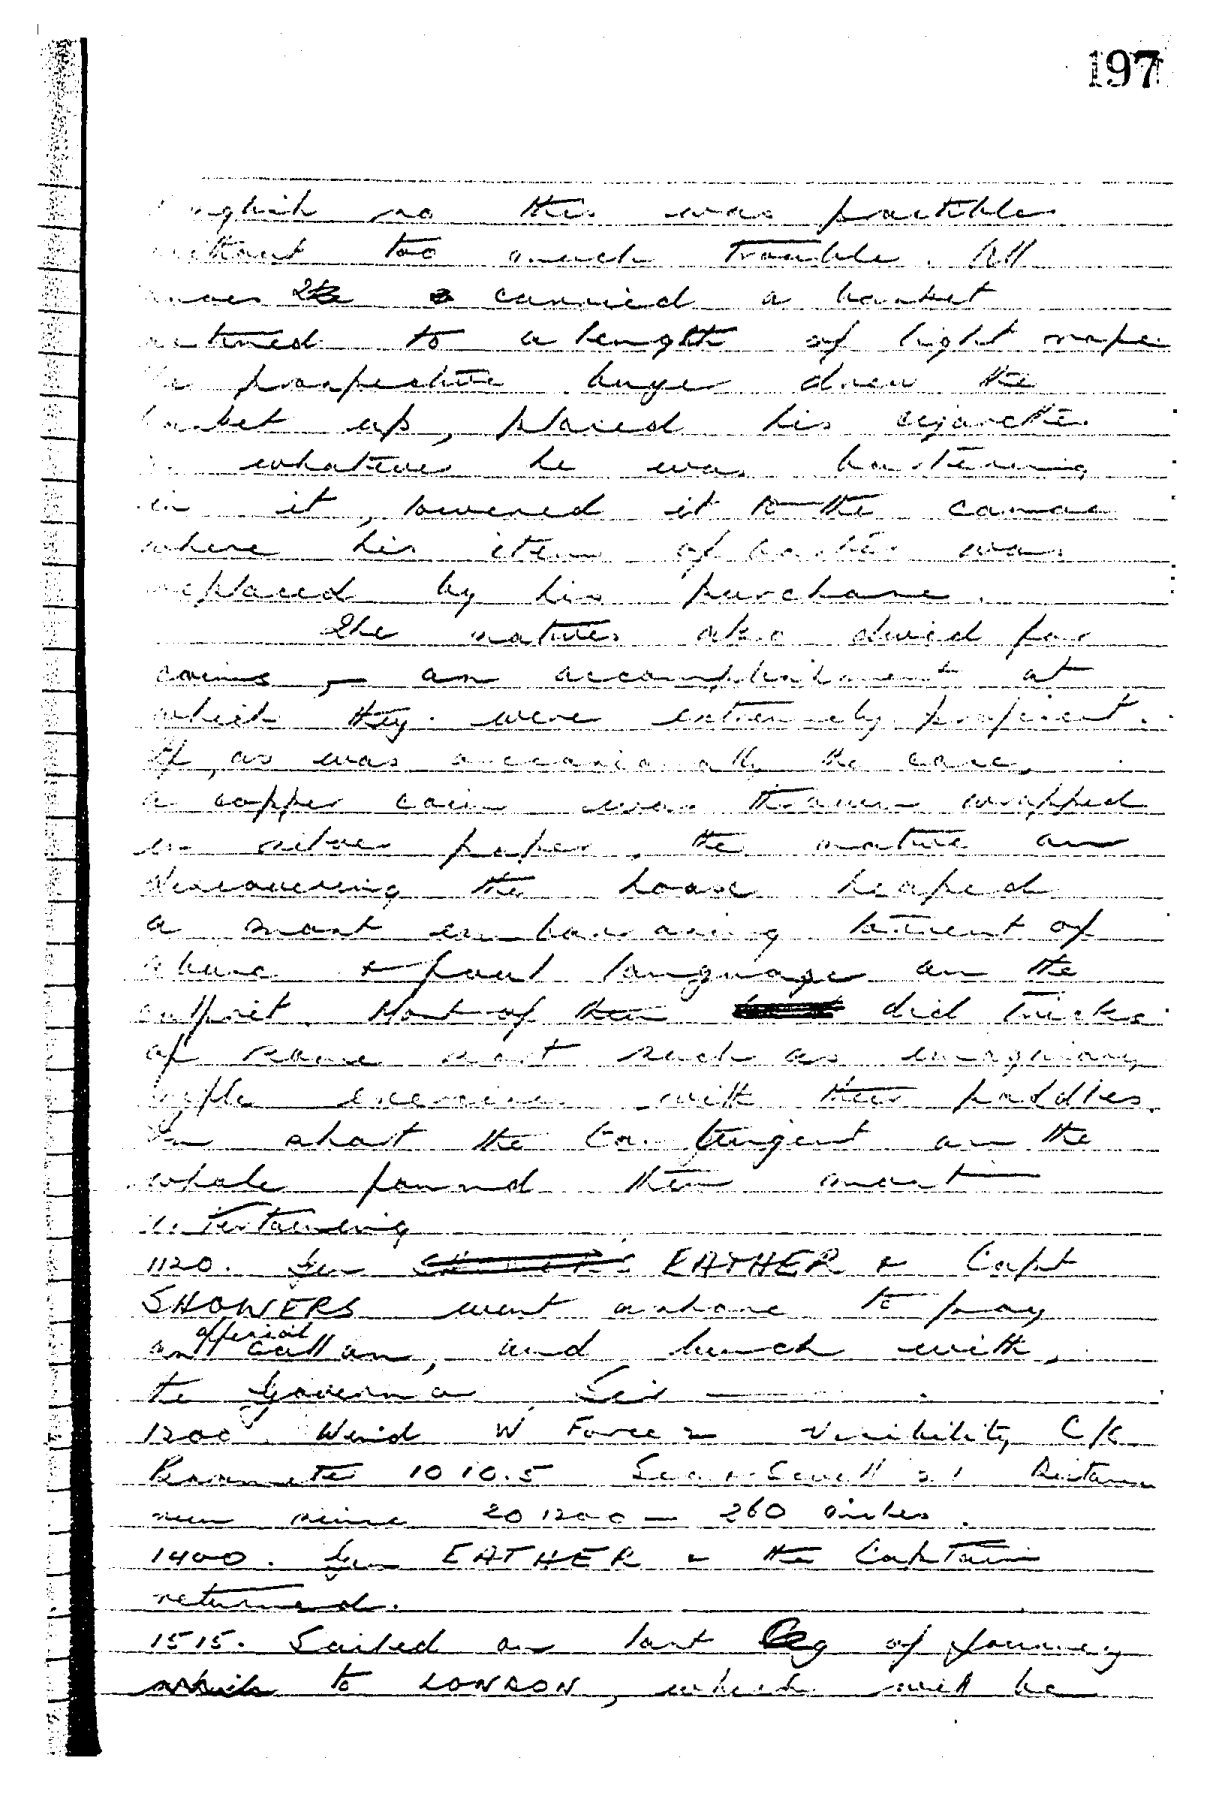 197
English so this was possible
without too much trouble. All
canoes carried a basket
attached to a length of light rope.
The prospective buyer drew the
basket up, placed his cigarettes
or whatever he was bartering
in it, lowered it to the canoe
where his item of barter was
replaced by his purchase.
The natives also dived for
coins, - an accomplishment at
which they were extremely proficient.
If, as was occasionally the case,
a copper coin was thrown wrapped
in silver paper, the native on
discovering the hoax heaped
a most embarrassing torrent of
abuse & foul language on the
culprit. Most of them did tricks
of some sort such as imaginary
rifle exercises with their paddles.
In short the Contingent on the
whole found them most
entertaining
1120. Gen EATHER & Capt
SHOWERS went ashore to pay
an official call on, and lunch with,
the Governor, Sir ——— .
1200. Wind W Force 2 Visibility C/K
Barometer 1010.5 Sea & Swell 21 Distance
run since 201200 — 260 miles.
1400. Gen EATHER & the Captain
returned.
1515. Sailed on last leg of journey
to LONDON, which will be